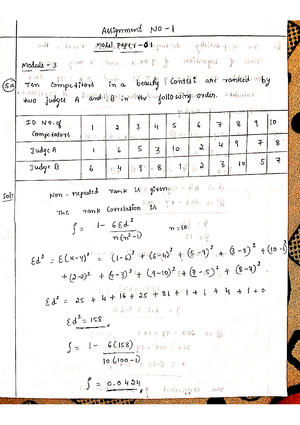 Assignment NO-1
Model Paper-01
Module-3
5a Ten competitors in a beauty contest are ranked by
two judges A and B in the following order.
ID NO. of Competators 1 2 3 4 5 6 7 8 9 10
Judge A 1 6 5 3 10 2 4 9 7 8
Judge B 6 4 9 8 1 2 3 10 5 7
Sol: Non-repeated rank is given
The rank correlation is
ρ = 1 - 6Σd² / n(n²-1) n=10
Σd² = Σ(x-y)² = (1-6)² + (6-4)² + (5-9)² + (3-8)² + (10-1)²
+ (2-2)² + (4-3)² + (9-10)² + (7-5)² + (8-7)²
Σd² = 25 + 4 + 16 + 25 + 81 + 1 + 1 + 4 + 1 + 0
Σd² = 158
ρ = 1 - 6(158) / 10(100-1)
ρ = 0.0424